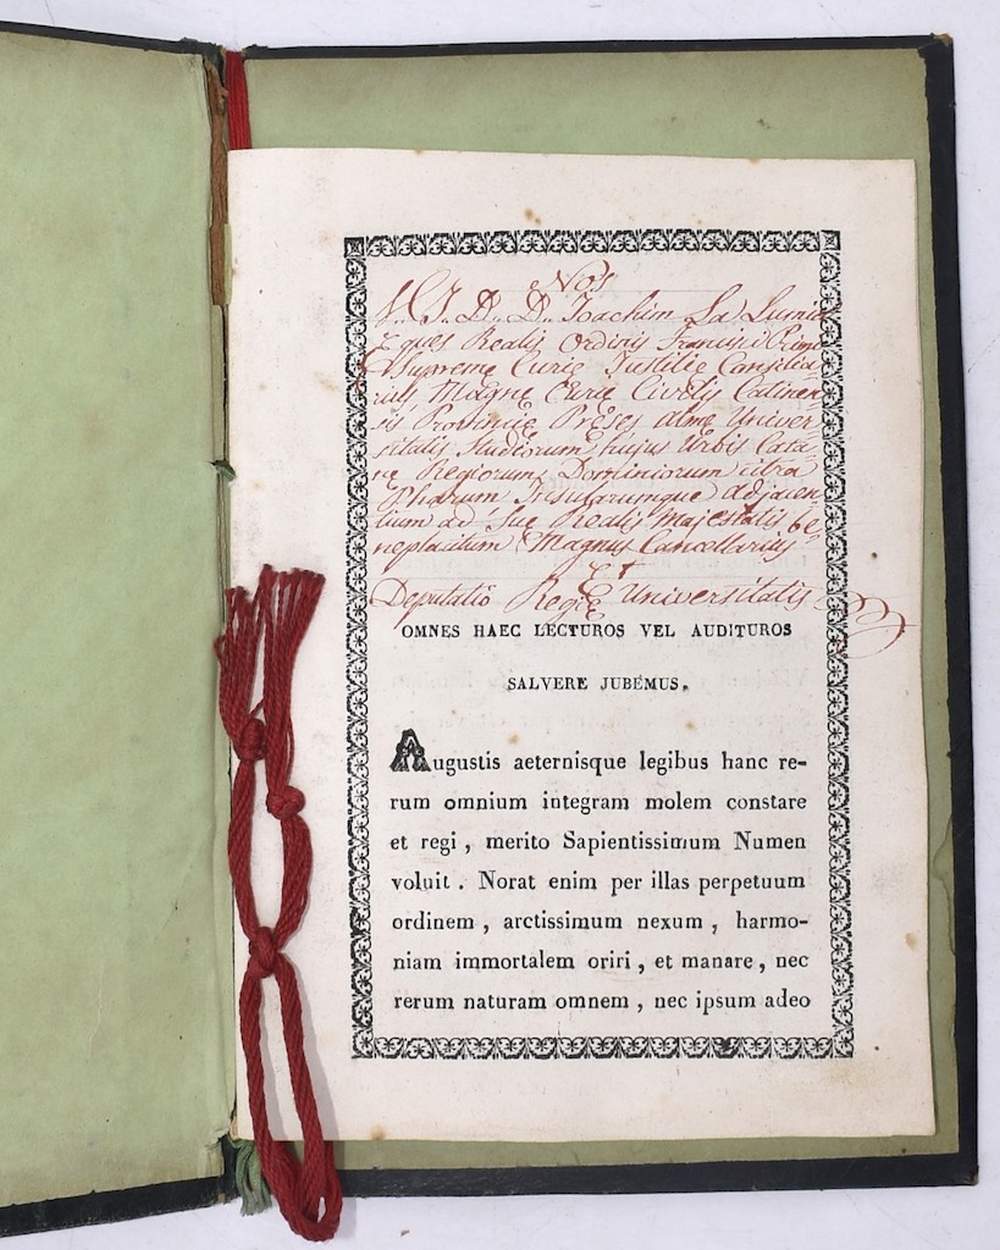 Nos
J. D. D. Joachim La Lumia
Eques Realis Ordinis Francisci Primi
Supreme Curie Justitie Consilia-
rius Magne Curie Civilis Catinen-
sis Provincie Preses alme Univer-
sitatis Studiorum hujus Urbis Cata-
ne Regiorum Dominiorum citra
Pharum Insularumque adjacen-
tium ad Sue Realis Majestatis be-
neplacitum Magnus Cancellarius
Et
Deputatio Regie Universitatis
OMNES HAEC LECTUROS VEL AUDITUROS
SALVERE JUBEMUS.
Augustis aeternisque legibus hanc re-
rum omnium integram molem constare
et regi, merito Sapientissimum Numen
voluit. Norat enim per illas perpetuum
ordinem, arctissimum nexum, harmo-
niam immortalem oriri, et manare, nec
rerum naturam omnem, nec ipsum adeo